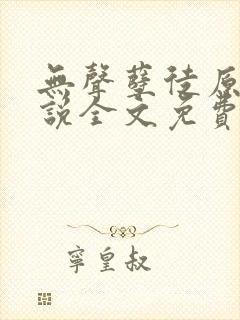 無聲孽徒原
說全文免費
寧皇叔